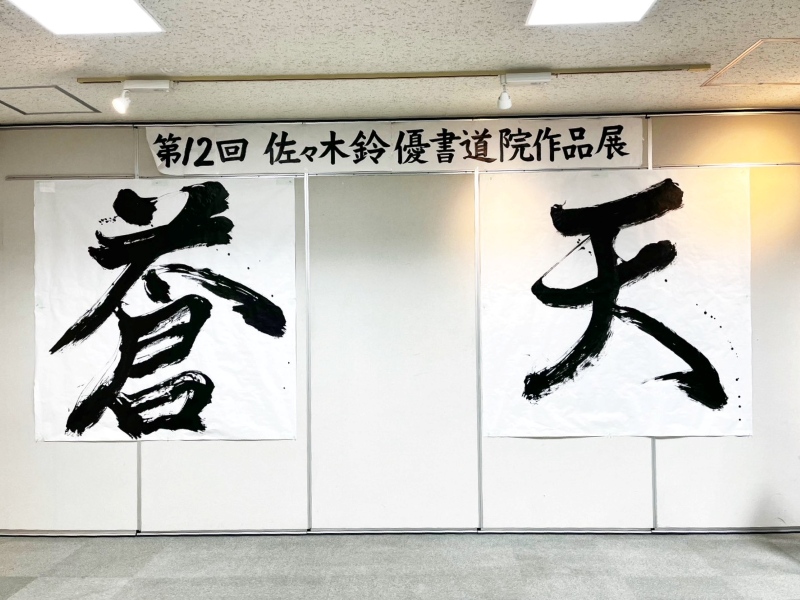 第12回 佐々木鈴優書道院作品展
蒼
天